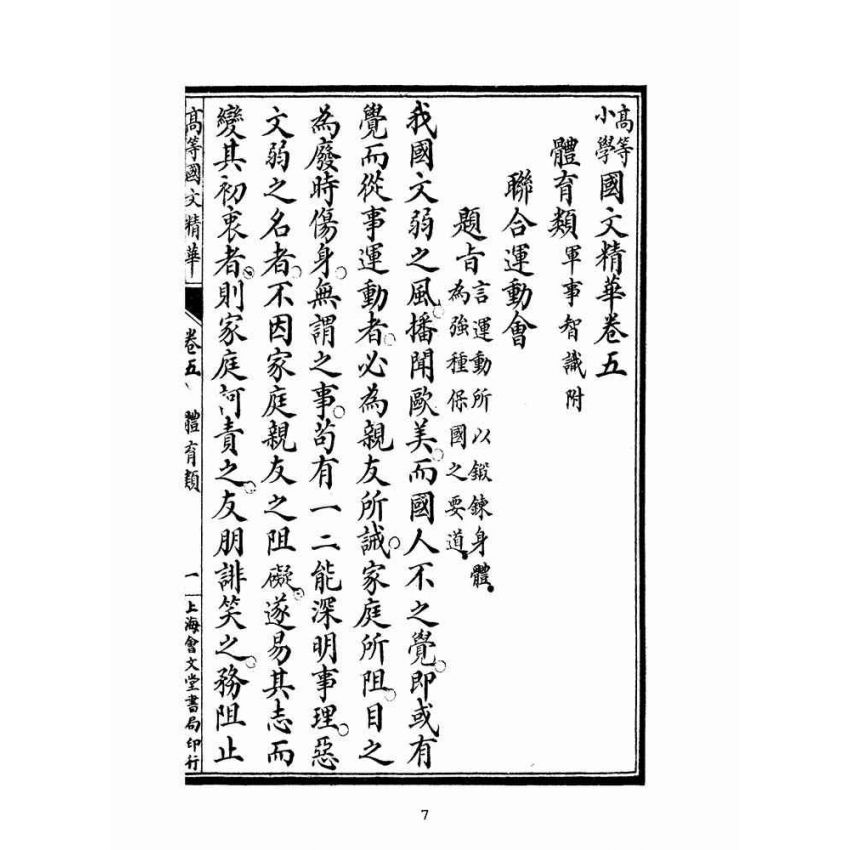 高等小學國文精華卷五
體育類 軍事智識附
聯合運動會
題旨 言運動所以鍛鍊身體。為強種保國之要道。
我國文弱之風。播聞歐美。而國人不之覺。即或有
覺而從事運動者。必為親友所誡。家庭所阻。目之
為廢時傷身。無謂之事。苟有一二能深明事理。惡
文弱之名者。不因家庭親友之阻礙。遂易其志而
變其初衷者。則家庭訶責之。友朋誹笑之。務阻止
高等國文精華 卷五 體育類 一 上海會文堂書局印行
7